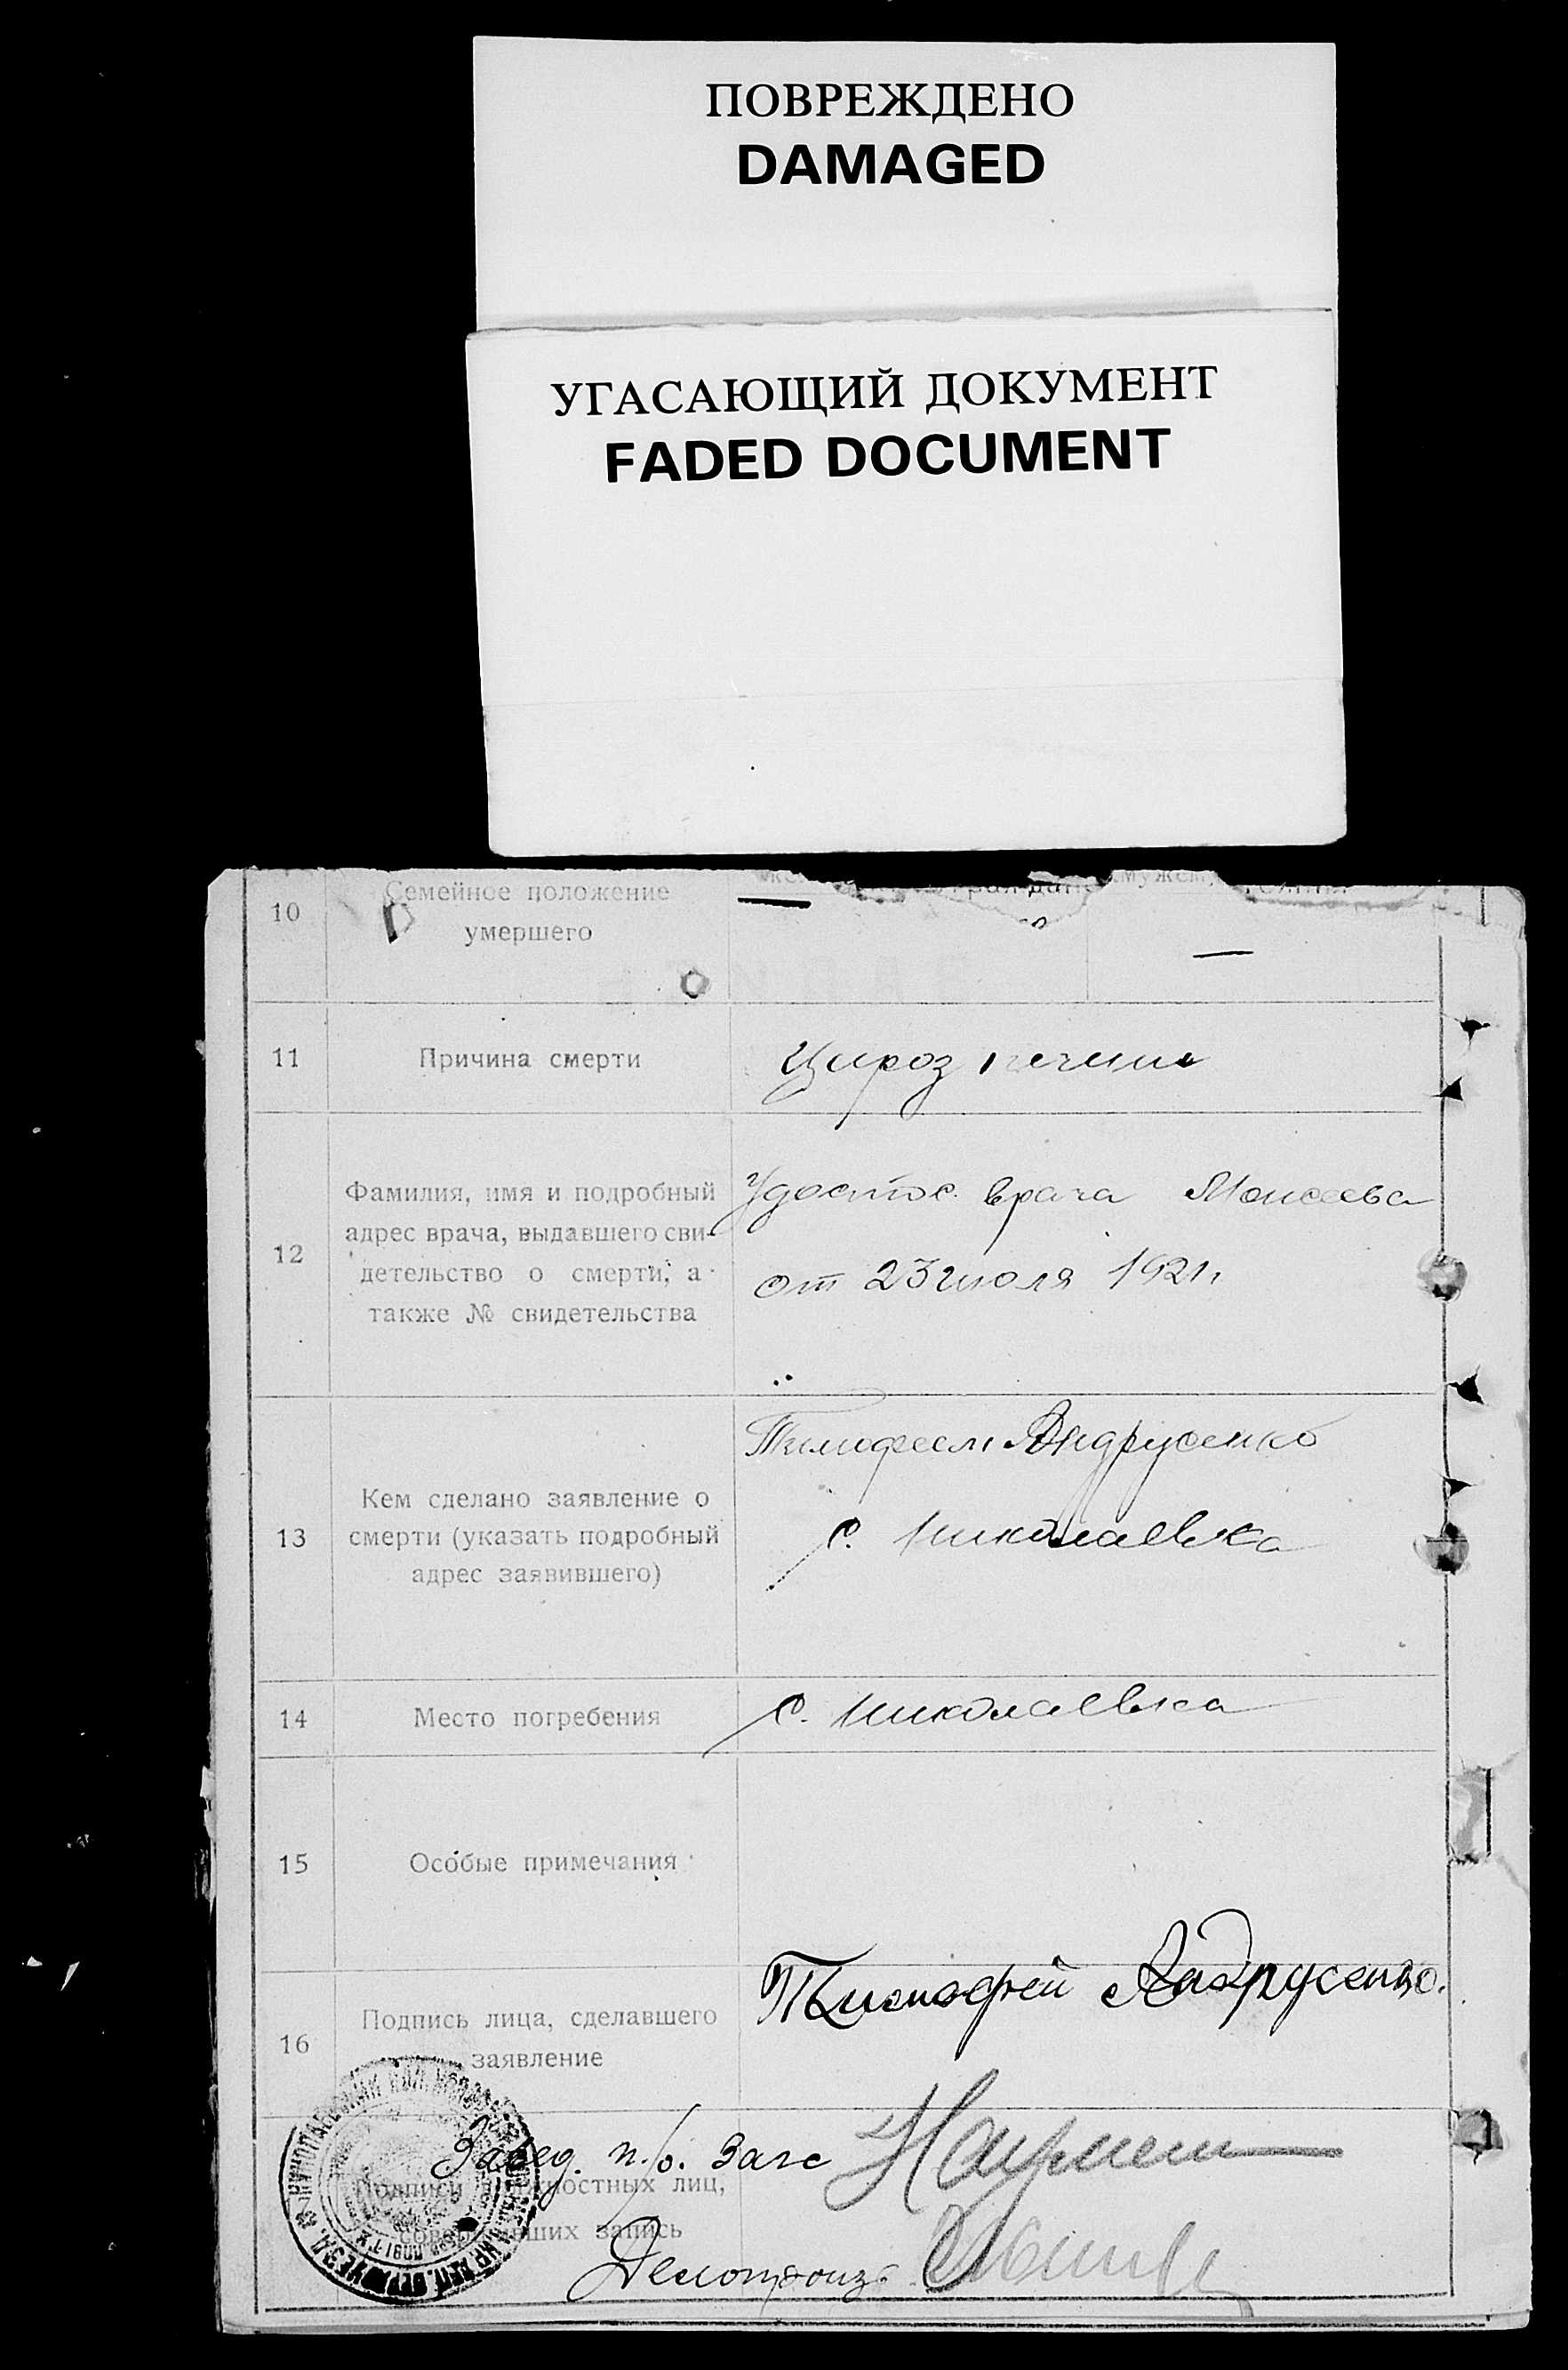 ПОВРЕЖДЕНО
DAMAGED
УГАСАЮЩИЙ ДОКУМЕНТ
FADED DOCUMENT
10
Семейное положение
умершего
—
—
11
Причина смерти
Цироз печени
12
Фамилия, имя и подробный
адрес врача, выдавшего сви-
детельство о смерти, а
также № свидетельства
Удостов. врача Моисеева
от 23 июля 1921.
13
Кем сделано заявление о
смерти (указать подробный
адрес заявившего)
Тимофеем Андрусенко
с. Николаевка
14
Место погребения
с. Николаевка
15
Особые примечания
16
Подпись лица, сделавшего
заявление
Тимофей Андрусенко.
Завед. п/о. Загс
Подписи должностных лиц,
совершивших запись
Делопроизв.